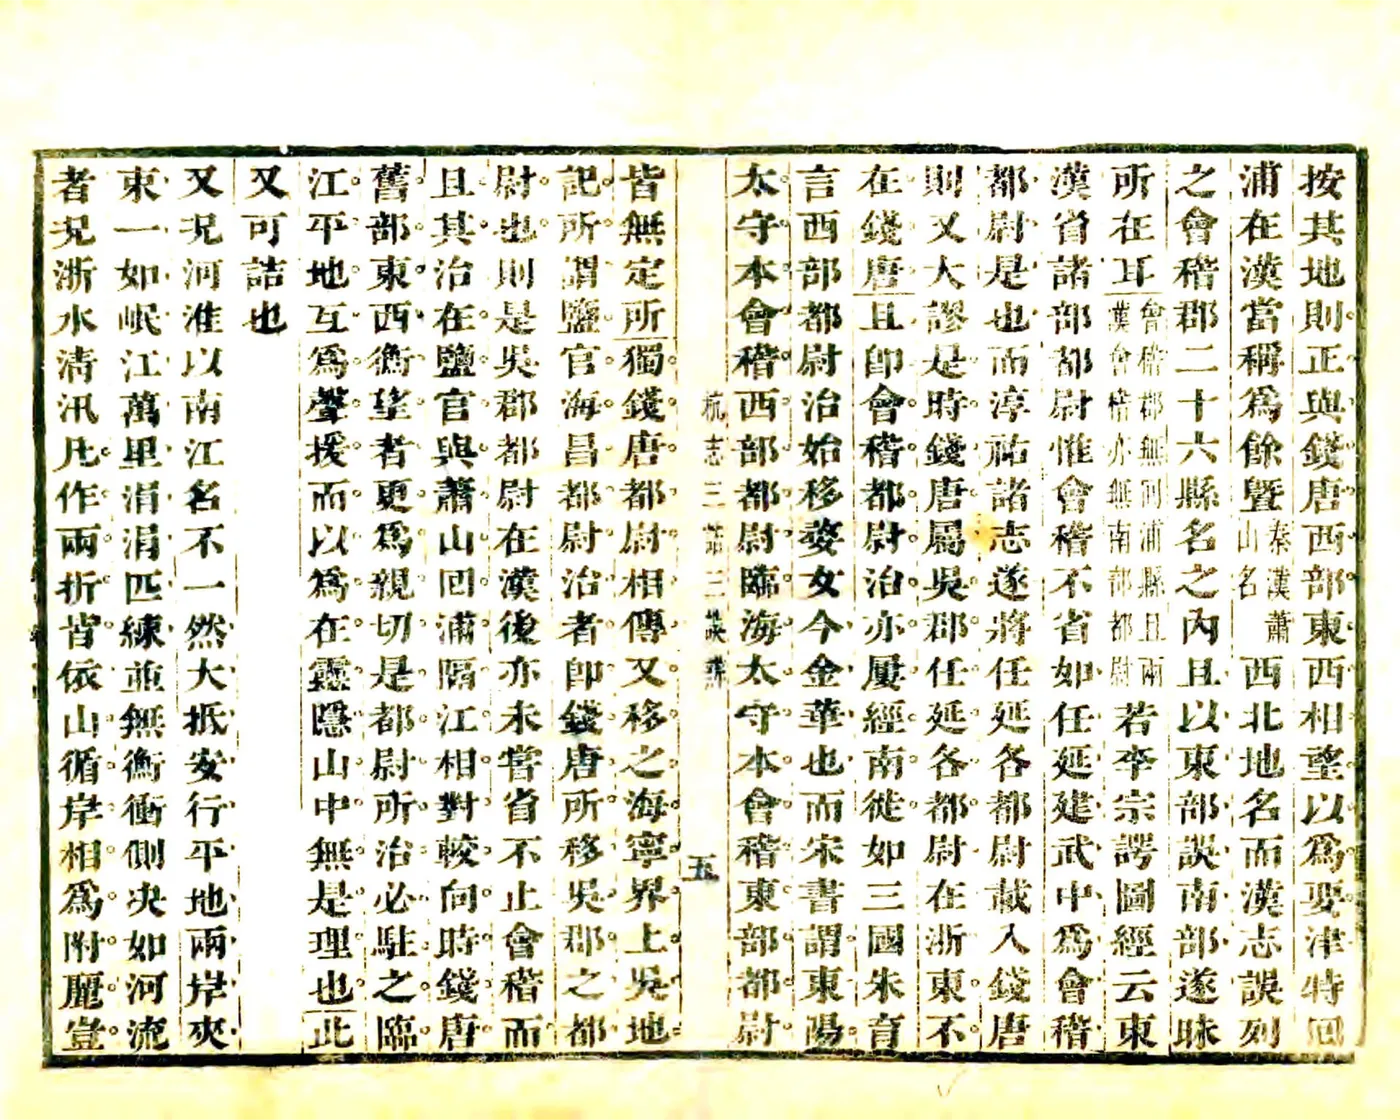 按其地則正與錢唐西部東西相望以爲要津特回
浦在漢當稱爲餘暨秦漢蕭山名西北地名而漢志誤列
之會稽郡二十六縣名之內且以東部説南部遂昧
所在耳會稽郡無回浦縣且兩漢會稽亦無南部都尉若李宗諤圖經云東
漢省諸部都尉惟會稽不省如任延建武中爲會稽
都尉是也而淳祐諸志遂將任延各都尉載入錢唐
則又大謬是時錢唐屬吳郡任延各都尉在浙東不
在錢唐且卽會稽都尉治亦屢經南徙如三國朱育
言西部都尉治始移婺女今金華也而宋書謂東陽
太守本會稽西部都尉臨海太守本會稽東部都尉
杭志三詰三誤辨
五
皆無定所獨錢唐都尉相傳又移之海寧界上吳地
記所謂鹽官海昌都尉治者卽錢唐所移吳郡之都
尉也則是吳郡都尉在漢後亦未嘗省不止會稽而
且其治在鹽官與蕭山回浦隔江相對較向時錢唐
舊部東西衡望者更爲親切是都尉所治必駐之臨
江平地互爲聲援而以爲在靈隱山中無是理也此
又可詰也
又況河淮以南江名不一然大抵安行平地兩岸夾
束一如岷江萬里涓涓匹練並無衝衝側決如河流
者況浙水清汛凡作兩折皆依山循岸相爲附麗豈